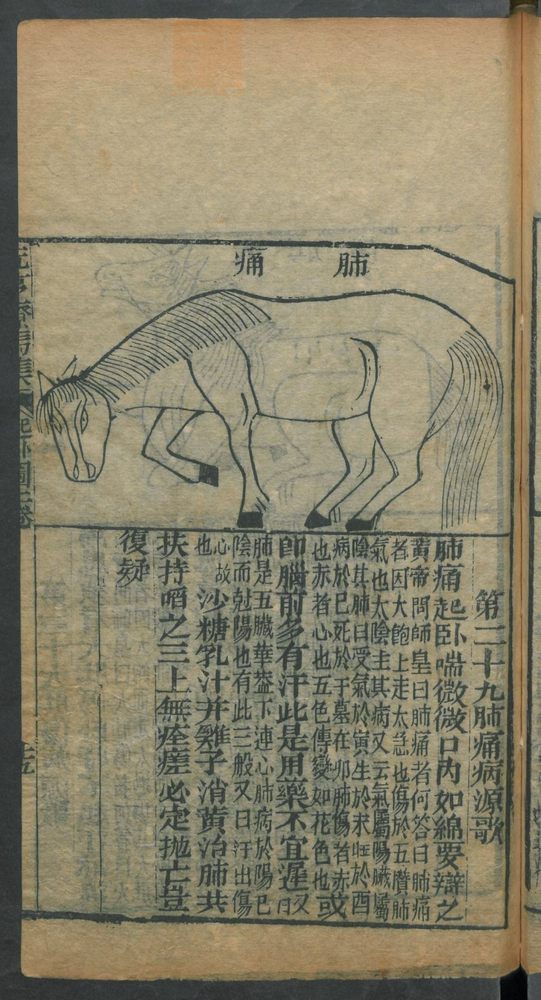 肺痛
第二十九肺痛病源歌
肺痛起卧喘微微口內如綿要辯之
黃帝問師皇曰肺痛者何答曰肺痛
者因大飽上走太急也傷於五臟肺
氣也太陰主其病又云氣屬陽臟屬
陰其肺曰受氣於寅生於未旺於酉
病於巳死於于墓在卯肺傷者赤
也赤者心也五色傳變如花色也或
卽腦前多有汗此是用藥不宜遲又曰
肺是五臟華蓋下連心肺病於陽巳
陰而尅陽也有此三般又曰汗出傷
心故也沙糖乳汁并雞子消黃治肺共
扶持啗之三上無痊瘥必定抛亡豈
復疑